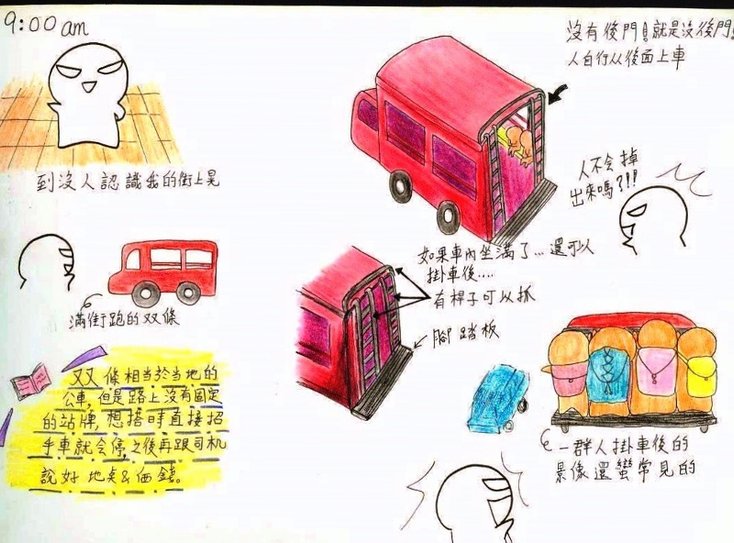 9:00 am
到沒人認識我的街上晃
滿街跑的双條
双條相當於當地的
公車,但是路上沒有固定
的站牌,想搭時直接招
手車就會停,之後再跟司机
說好地点&価錢。
沒有後門!就是沒後門!
人自行从後面上車
人不會掉
出來嗎?!!
如果車內坐滿了...還可以
掛車後....
有桿子可以抓
腳踏板
一群人掛車後的
影像還蠻常見的